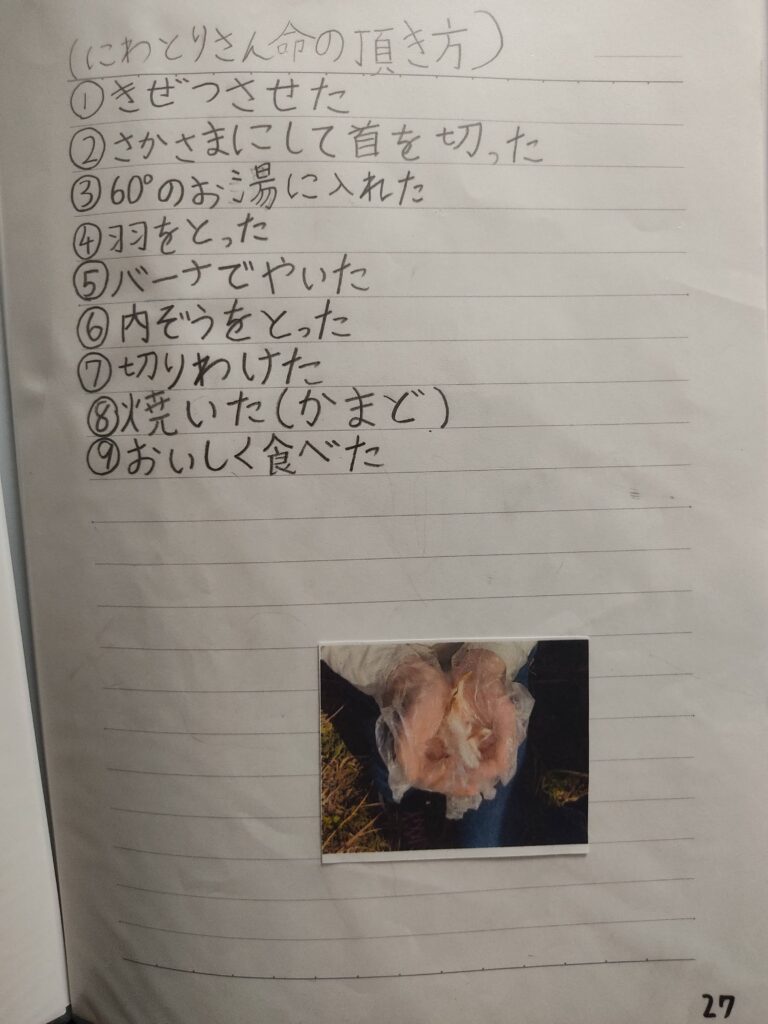 (にわとりさん命の頂き方)
①きぜつさせた
②さかさまにして首を切った
③60°のお湯に入れた
④羽をとった
⑤バーナでやいた
⑥内ぞうをとった
⑦切りわけた
⑧焼いた(かまど)
⑨おいしく食べた
27